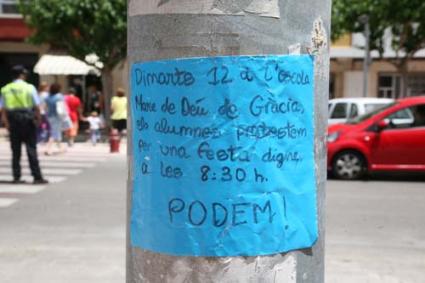 Dimarts 12 a l'Escola
Mare de Déu de Gràcia,
els alumnes protestem
per una festa digna,
a les 8:30 h.
PODEM!